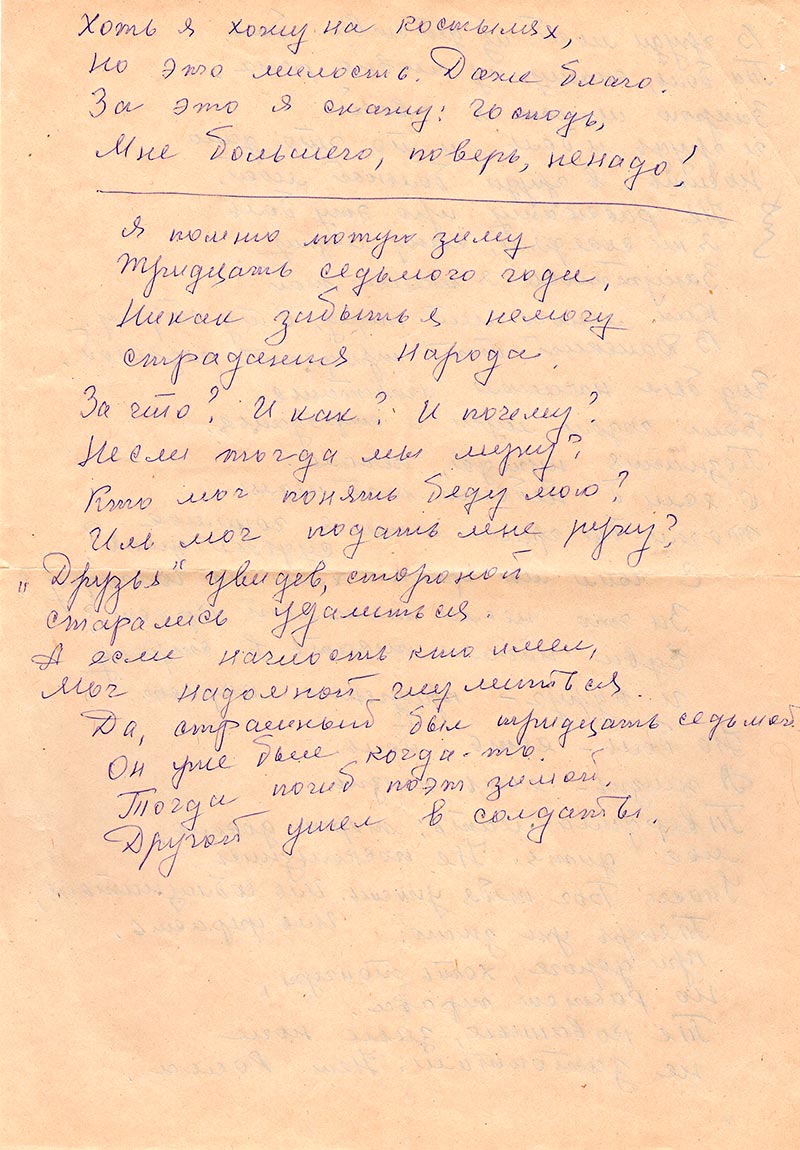 Хоть я хожу на костылях,
Но это милость. Даже благо.
За это я скажу: Господь,
Мне большего, поверь, ненадо!
Я помню лютую зиму
Тридцать седьмого года,
Никак забыть я немогу
страдания народа.
За что? И как? И почему?
Несли тогда мы муку?
Кто мог понять беду мою?
Иль мог подать мне руку?
„Друзья" увидев, стороной
старались удалиться.
А если наглость кто имел,
Мог надомной глумиться.
Да, страшный был тридцать седьмой
Он уже был когда-то.
Тогда погиб поэт зимой,
Другой ушел в солдаты.